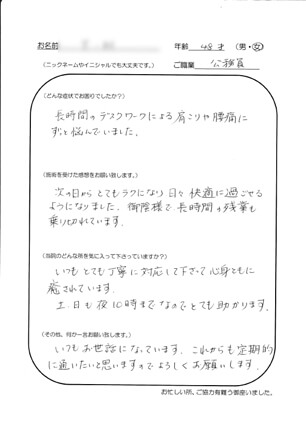 お名前
年齢 48才 (男・女)
(ニックネームやイニシャルでも大丈夫です。)
ご職業 公務員
(どんな症状でお困りでしたか?)
長時間のデスクワークによる肩こりや腰痛に
ずっと悩んでいました。
(施術を受けた感想をお願い致します。)
次の日からとてもラクになり日々快適に過ごせる
ようになりました。御陰様で長時間の残業も
乗り切れています。
(当院のどんな所を気に入って下さっていますか?)
いつもとても丁寧に対応して下さって心身ともに
癒されています。
土、日も夜10時までなのでとても助かります。
(その他、何か一言お願い致します。)
いつもお世話になっています。これからも定期的
に通いたいと思いますのでよろしくお願いします。
お忙しい所、ご協力有難う御座いました。